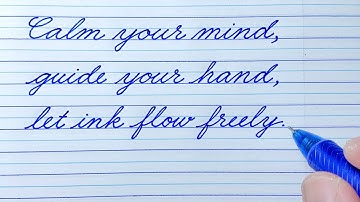 Calm your mind,
guide your hand,
let ink flow freely.